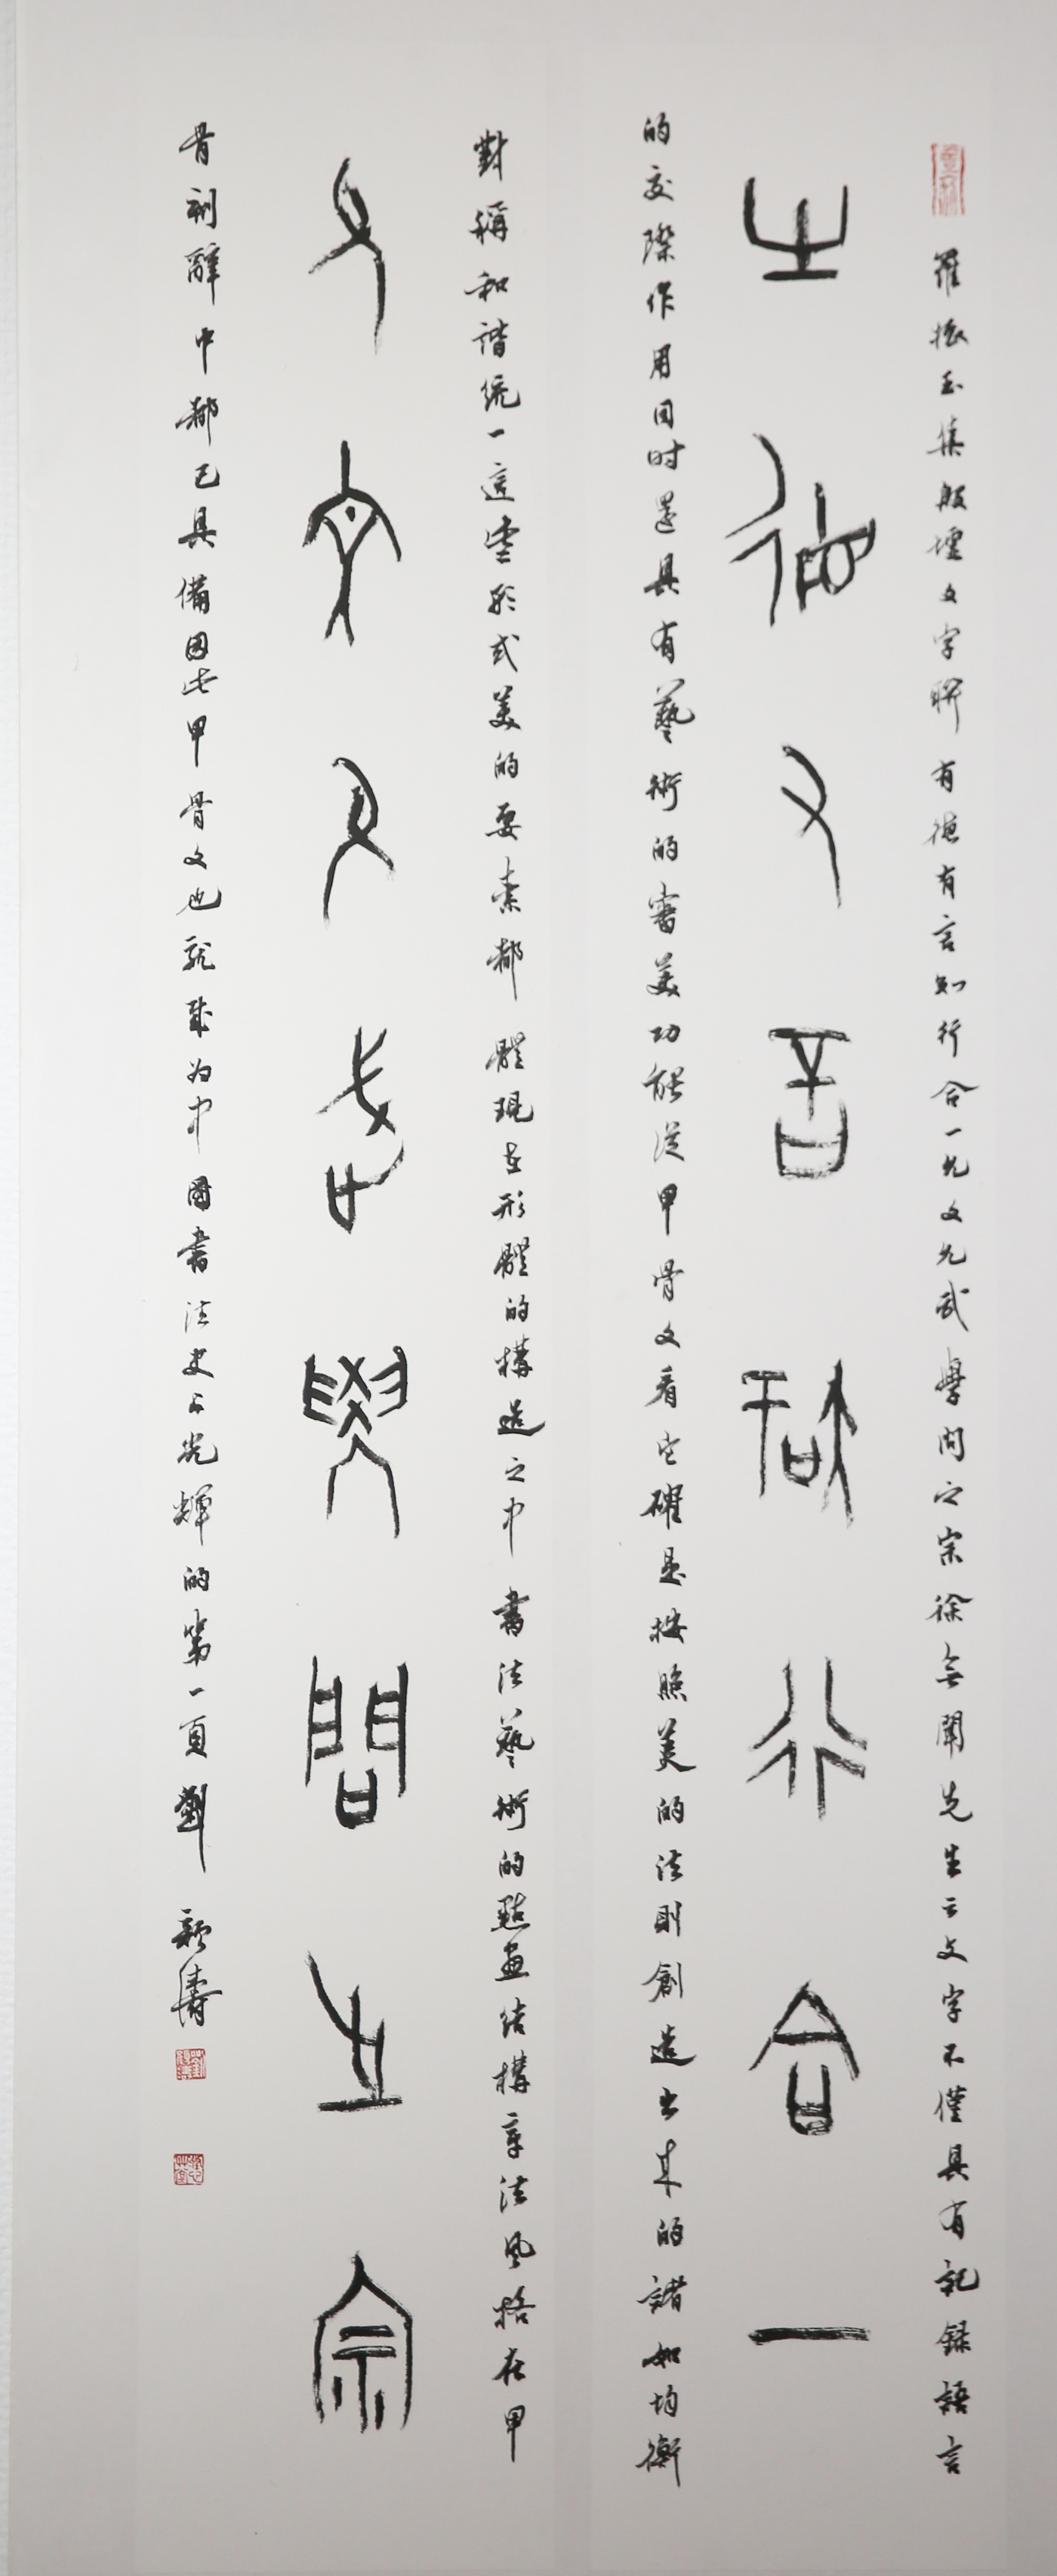 羅振玉集殷墟文字聯有德有言知行合一允文允武學問之宗徐無聞先生云文字不僅具有記録語言
㞢德又言知行合一
的交際作用同時還具有藝術的審美功能從甲骨文看它確是按照美的法則創造出來的諸如均衡
對稱和諧統一這些形式美的要素都體現在形體的構造之中書法藝術的點畫結構章法風格在甲
允文允武學問之宗
骨刻辭中都已具備因此甲骨文也就成为中國書法史上光輝的第一頁劉穎濤